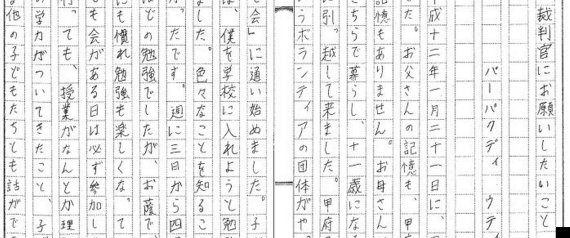 裁判官にお願いしたいこと
バーパクディ　ウティ
成十二年一月二十一日に、
た。お父さんの記憶も、甲
記憶もありません。お母さん
ちらで暮らし、十一歳にな
に引っ越して来ました。甲府
うボランティアの団体がや
て会」に通い始めました。子
は、僕を学校に入れようと勉
ました。色々なことを知るこ
かったです。週に三日から四
ほどの勉強でしたが、お蔭で、
にも慣れ勉強も楽しくなって
も会がある日は必ず参加し
行っても、授業がなんとか理
の学力がついてきたこと、子
他の子どもたちとも話がで